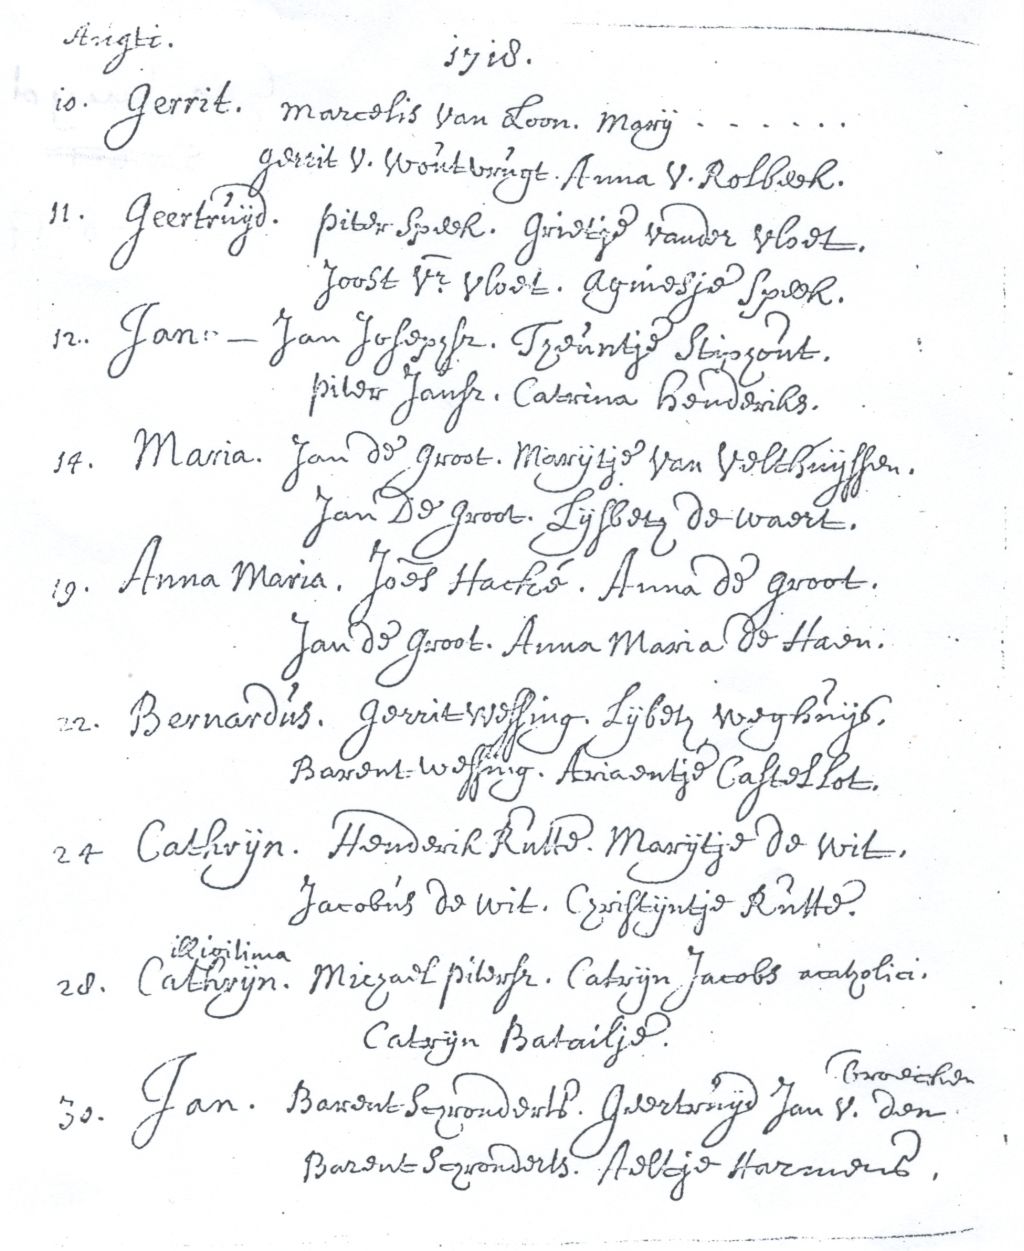 Augti.
1718.
10. Gerrit. Marcelis Van Loon. Marij . . . . . .
gerrit V. Woutbrugt. Anna V. Rolbeek.
11. Geertruijd. Piter Speek. Grietje vander Vloet.
Joost Vr. Vloet. Agniesje Speek.
12. Jan: — Jan Josephsz. Teuntje
Piter Jansz. Catrina Henderiks.
14. Maria. Jan de Groot. Marijtje Van Velthuijssen.
Jan De Groot. Lijsbetz de waert.
19. Anna Maria. Joes Hacké. Anna de Groot.
Jan de Groot. Anna Maria de Haen.
22. Bernardus. Gerrit Wessing. Lijbetz weghuijs.
Barent Wessing. Ariaentje Castellot.
24 Cathrijn. Henderik Rutte. Marijtje de wit.
Jacobus de wit. Christijntje Rutte.
illigitima
28. Cathrijn. Michael Pitersz. Catrijn Jacobs acatholici.
Catrijn Batailje.
Broecken
30. Jan. Barent Schronderts. Geertruijd Jan V. den
Barent Schronderts. Aeltje Harmens.